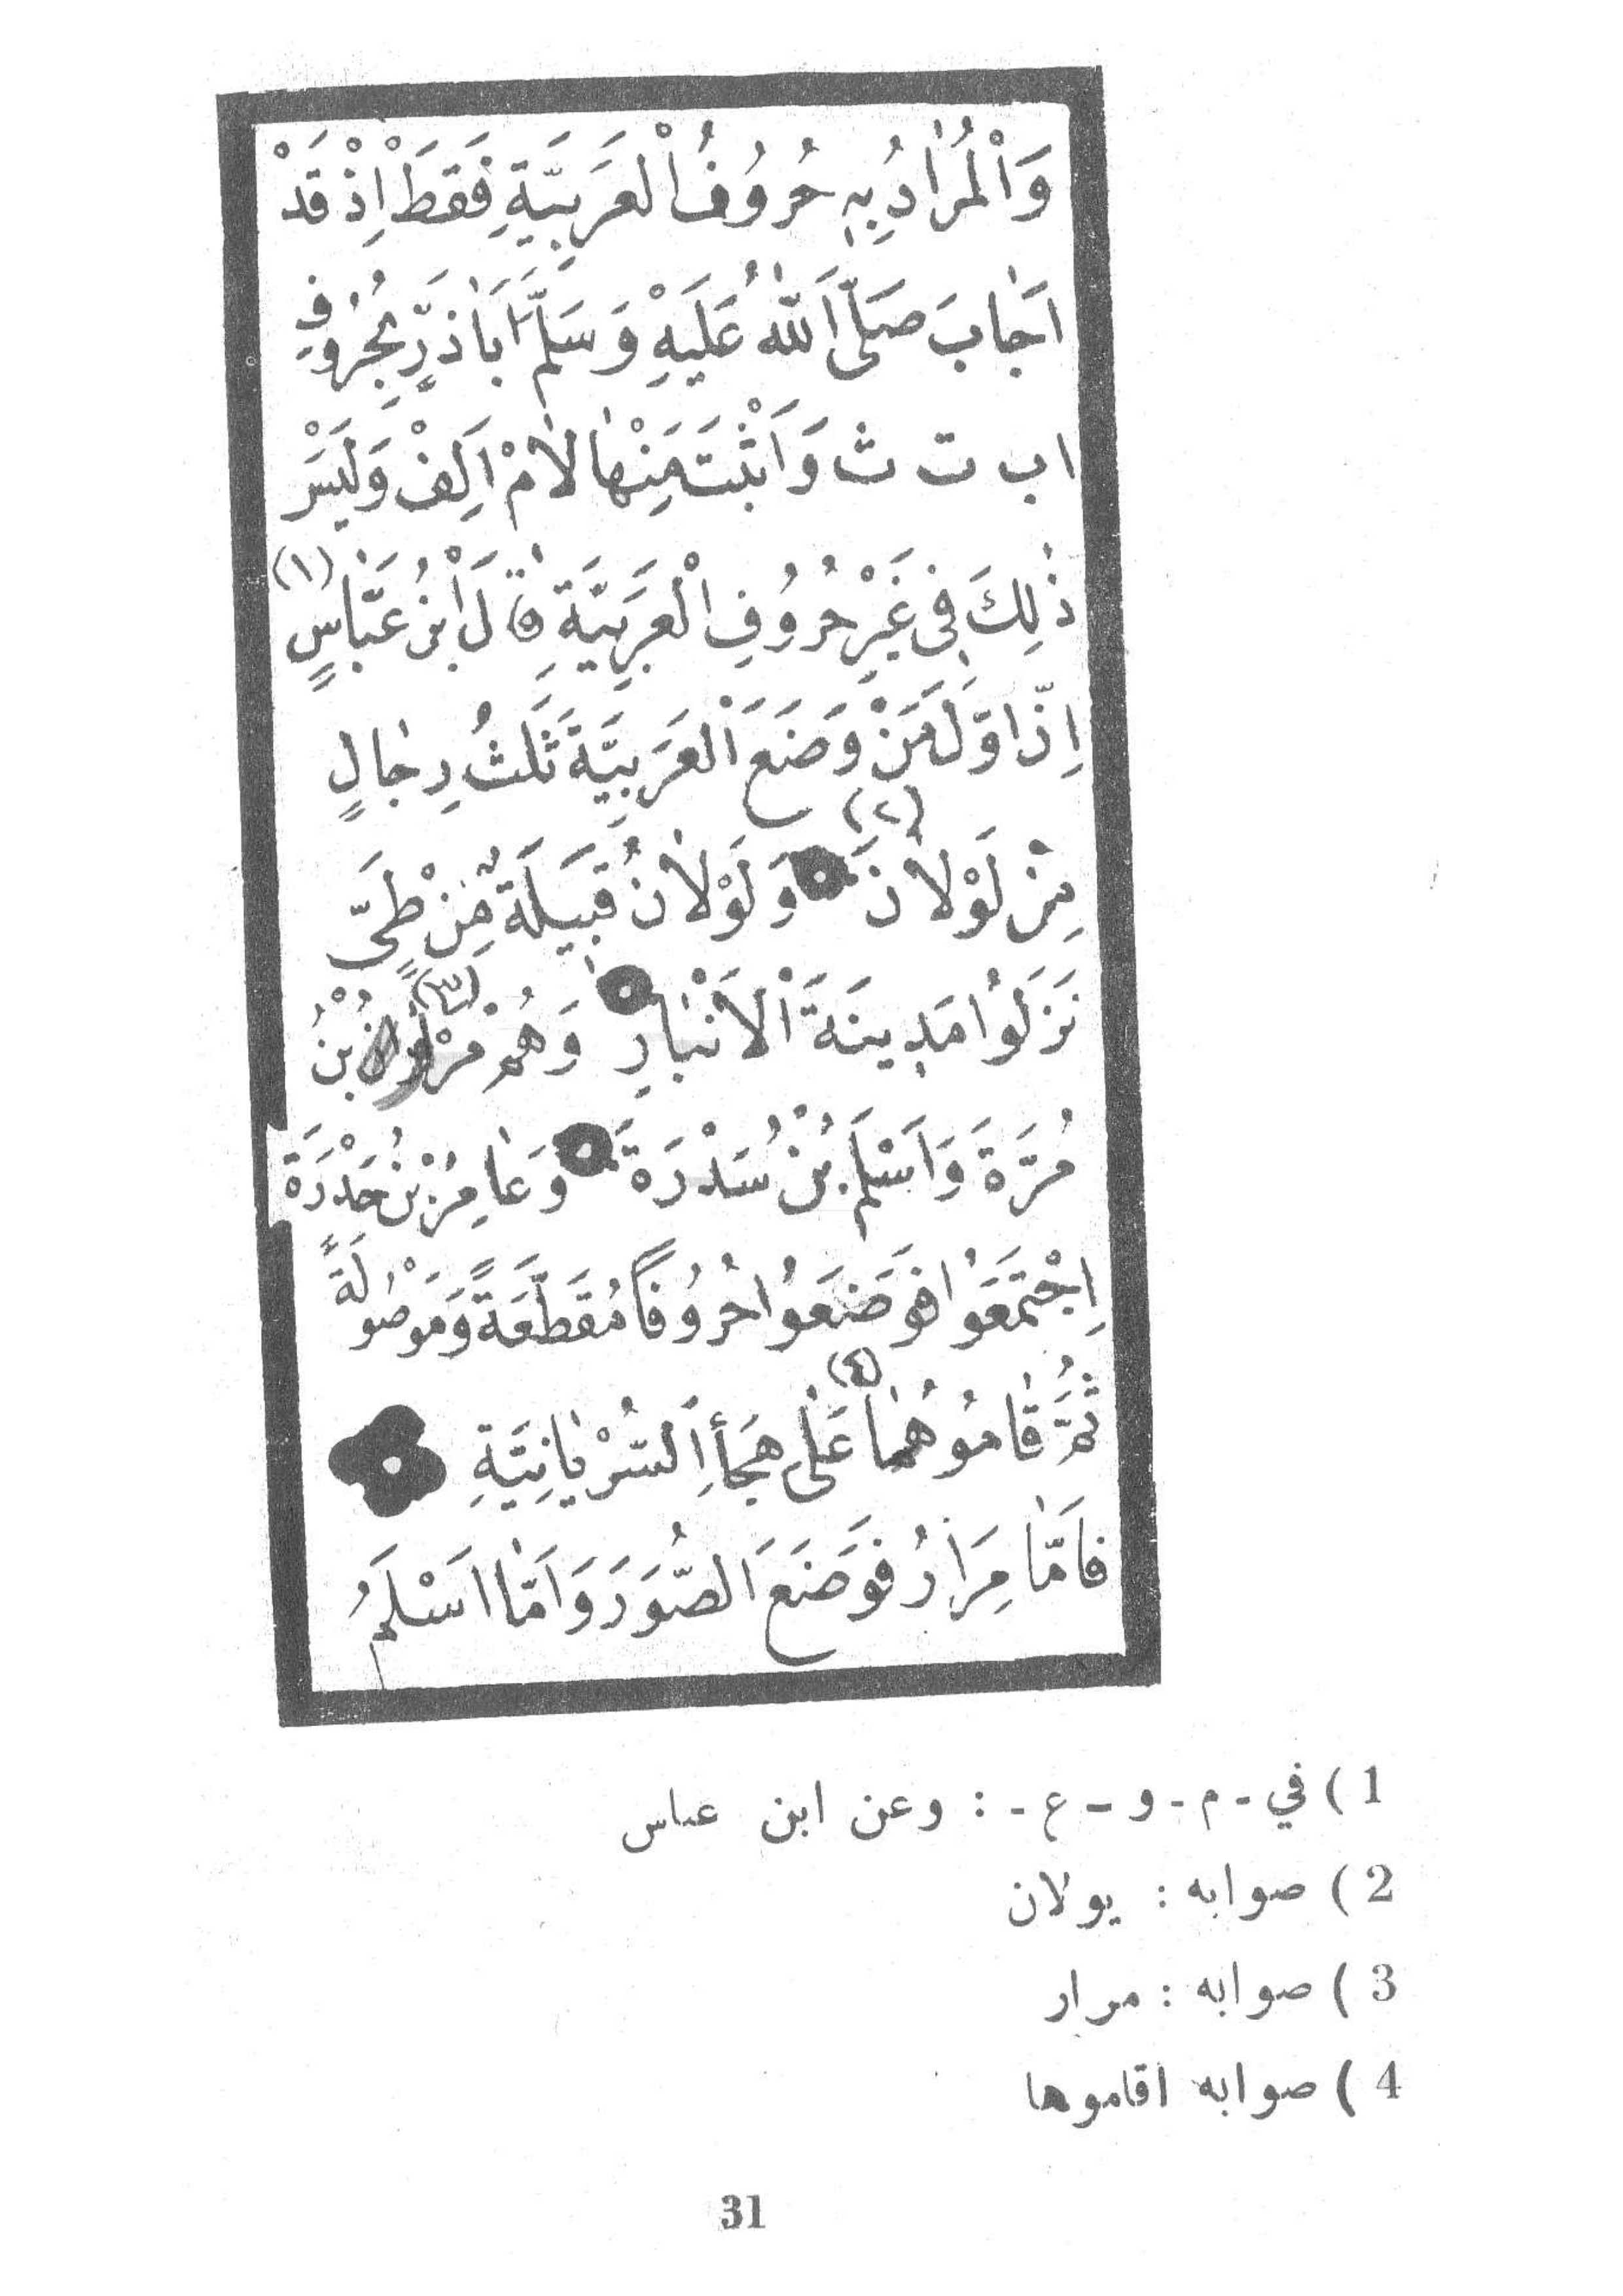 وَالْمُرَادُ بِهِ حُرُوفُ الْعَرَبِيَّةِ فَقَطْ اِذْ قَدْ
اَجَابَ صَلَّى اللّٰهُ عَلَيْهِ وَسَلَّمَ اَبَا ذَرٍّ بِحُرُوفِ
ا ب ت ث وَاَثْبَتَ مِنْهَا لَامْ اَلِفْ وَلَيْسَ
ذٰلِكَ فِى غَيْرِ حُرُوفِ الْعَرَبِيَّةِ قَالَ ابْنُ عَبَّاسٍ (١)
اِنَّ اَوَّلَ مَنْ وَضَعَ الْعَرَبِيَّةَ ثَلٰثُ رِجَالٍ
مِنْ لَوْلَانَ (٢) وَلَوْلَانُ قَبِيلَةٌ مِنْ طَىٍّ
نَزَلُوا مَدِينَةَ الْاَنْبَارِ وَهُمْ (٣) بْنُ
مُرَّةَ وَاَسْلَمُ بْنُ سُدْرَةَ وَعَامِرُ بْنُ حَدْرَةَ
اِجْتَمَعُوا فَوَضَعُوا حُرُوفًا مُقَطَّعَةً وَمَوْصُولَةً
ثُمَّ قَامُوهُمَا (٤) عَلٰى هَجَأِ السُّرْيَانِيَّةِ
فَاَمَّا مِرَارُ فَوَضَعَ الصُّوَرَ وَاَمَّا اَسْلَمُ
1 ) في - م - و - ع - : وعن ابن عباس
2 ) صوابه : يولان
3 ) صوابه : مرار
4 ) صوابه اقاموها
31